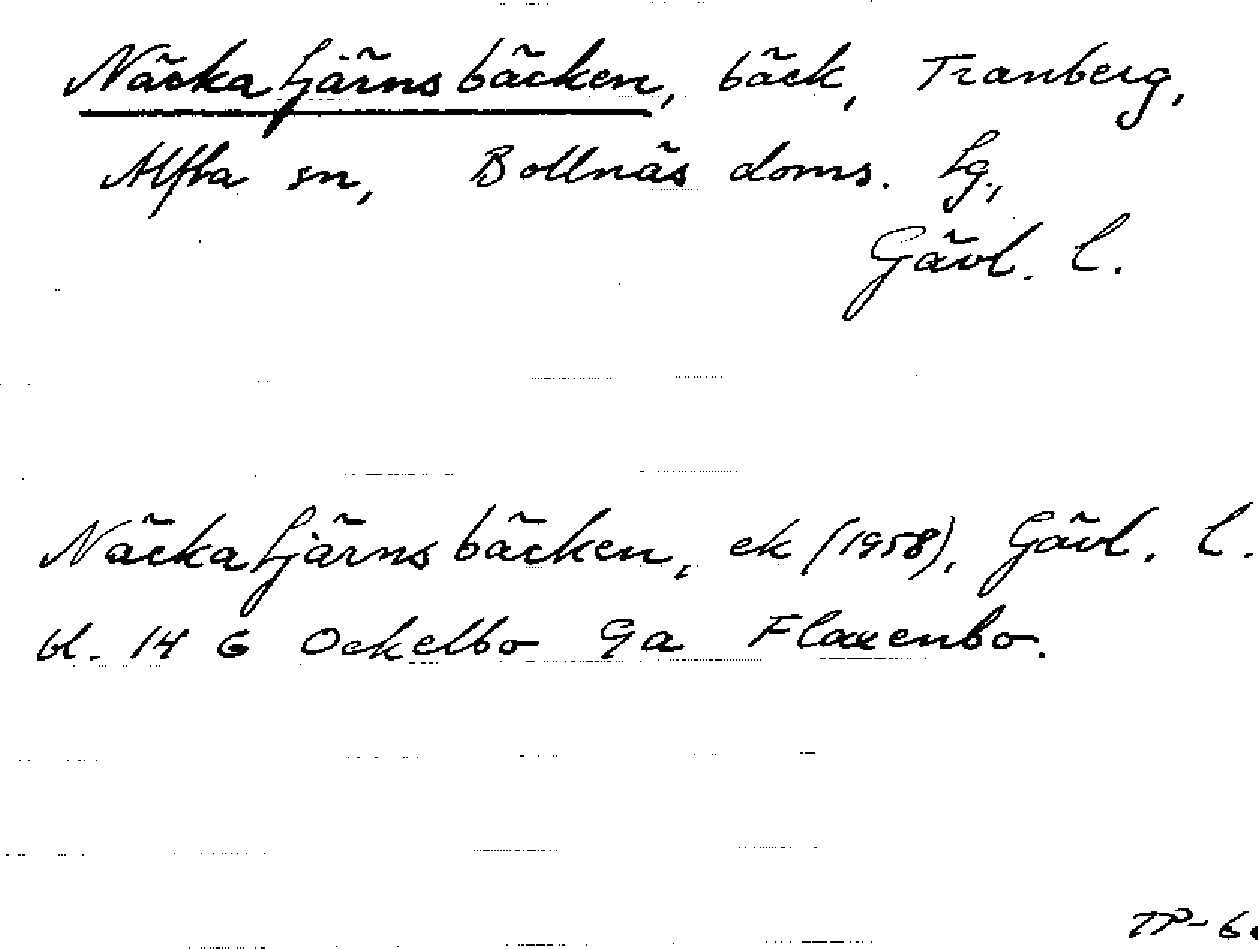 Näckatjärnsbäcken, bäck, Tranberg,
Alfta sn, Bollnäs doms. tg.,
Gävl. l.
Näckatjärnsbäcken, ek (1958), Gävl. l.
bl. 14 G Ockelbo 9a Flaxenbo.
TP-6